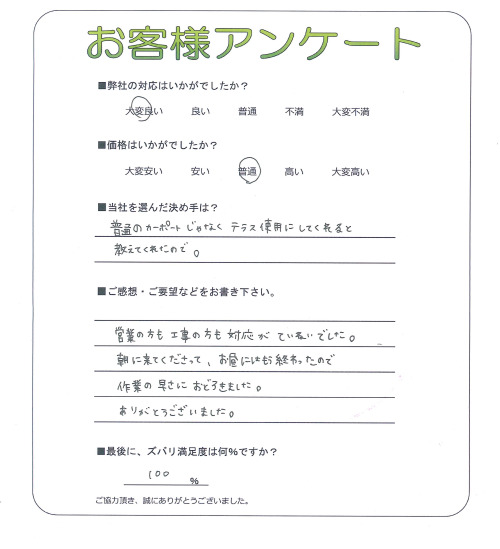 お客様アンケート
■弊社の対応はいかがでしたか？
大変良い 良い 普通 不満 大変不満
■価格はいかがでしたか？
大変安い 安い 普通 高い 大変高い
■当社を選んだ決め手は？
普通のカーポートじゃなくテラス使用にしてくれると
教えてくれたので。
■ご感想・ご要望などをお書き下さい。
営業の方も工事の方も対応がていねいでした。
朝に来てくださって、お昼にはもう終わったので
作業の早さにおどろきました。
ありがとうございました。
■最後に、ズバリ満足度は何％ですか？
100 ％
ご協力頂き、誠にありがとうございました。